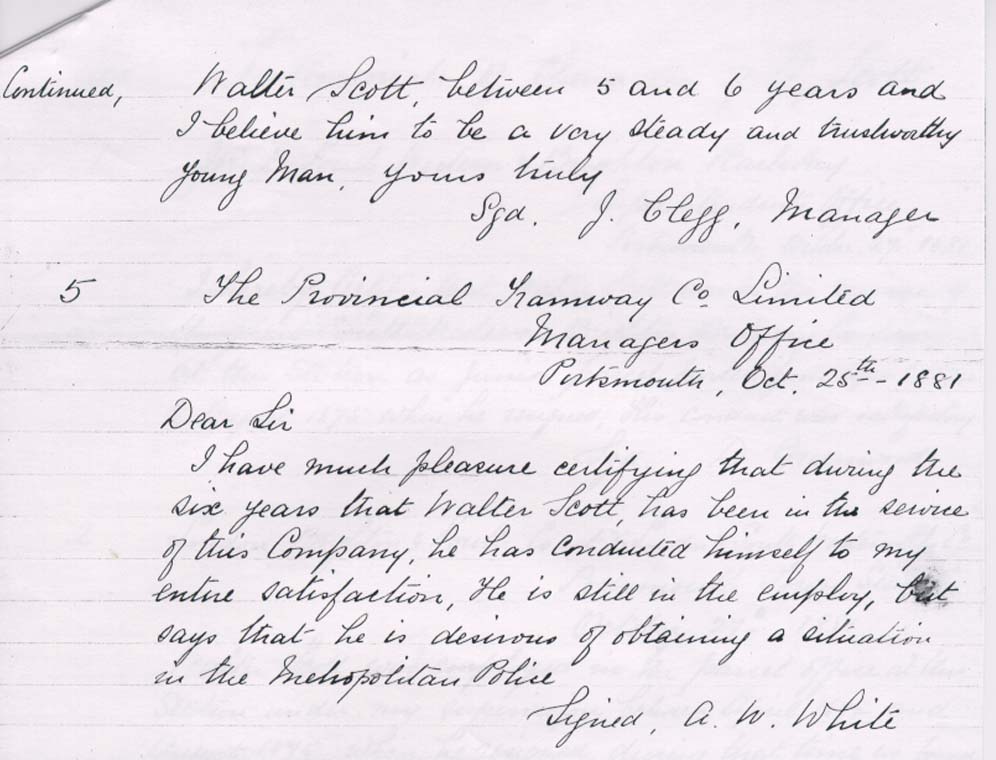 Continued, Walter Scott, between 5 and 6 years and
I believe him to be a very steady and trustworthy
young Man, yours truly
Sgd. J. Clegg, Manager
5 The Provincial Tramway Co. Limited
Managers Office
Portsmouth, Oct. 25th - 1881
Dear Sir
I have much pleasure certifying that during the
six years that Walter Scott, has been in the service
of this Company, he has conducted himself to my
entire satisfaction, He is still in the employ, but
says that he is desirous of obtaining a situation
in the Metropolitan Police
Signed, A. W. White